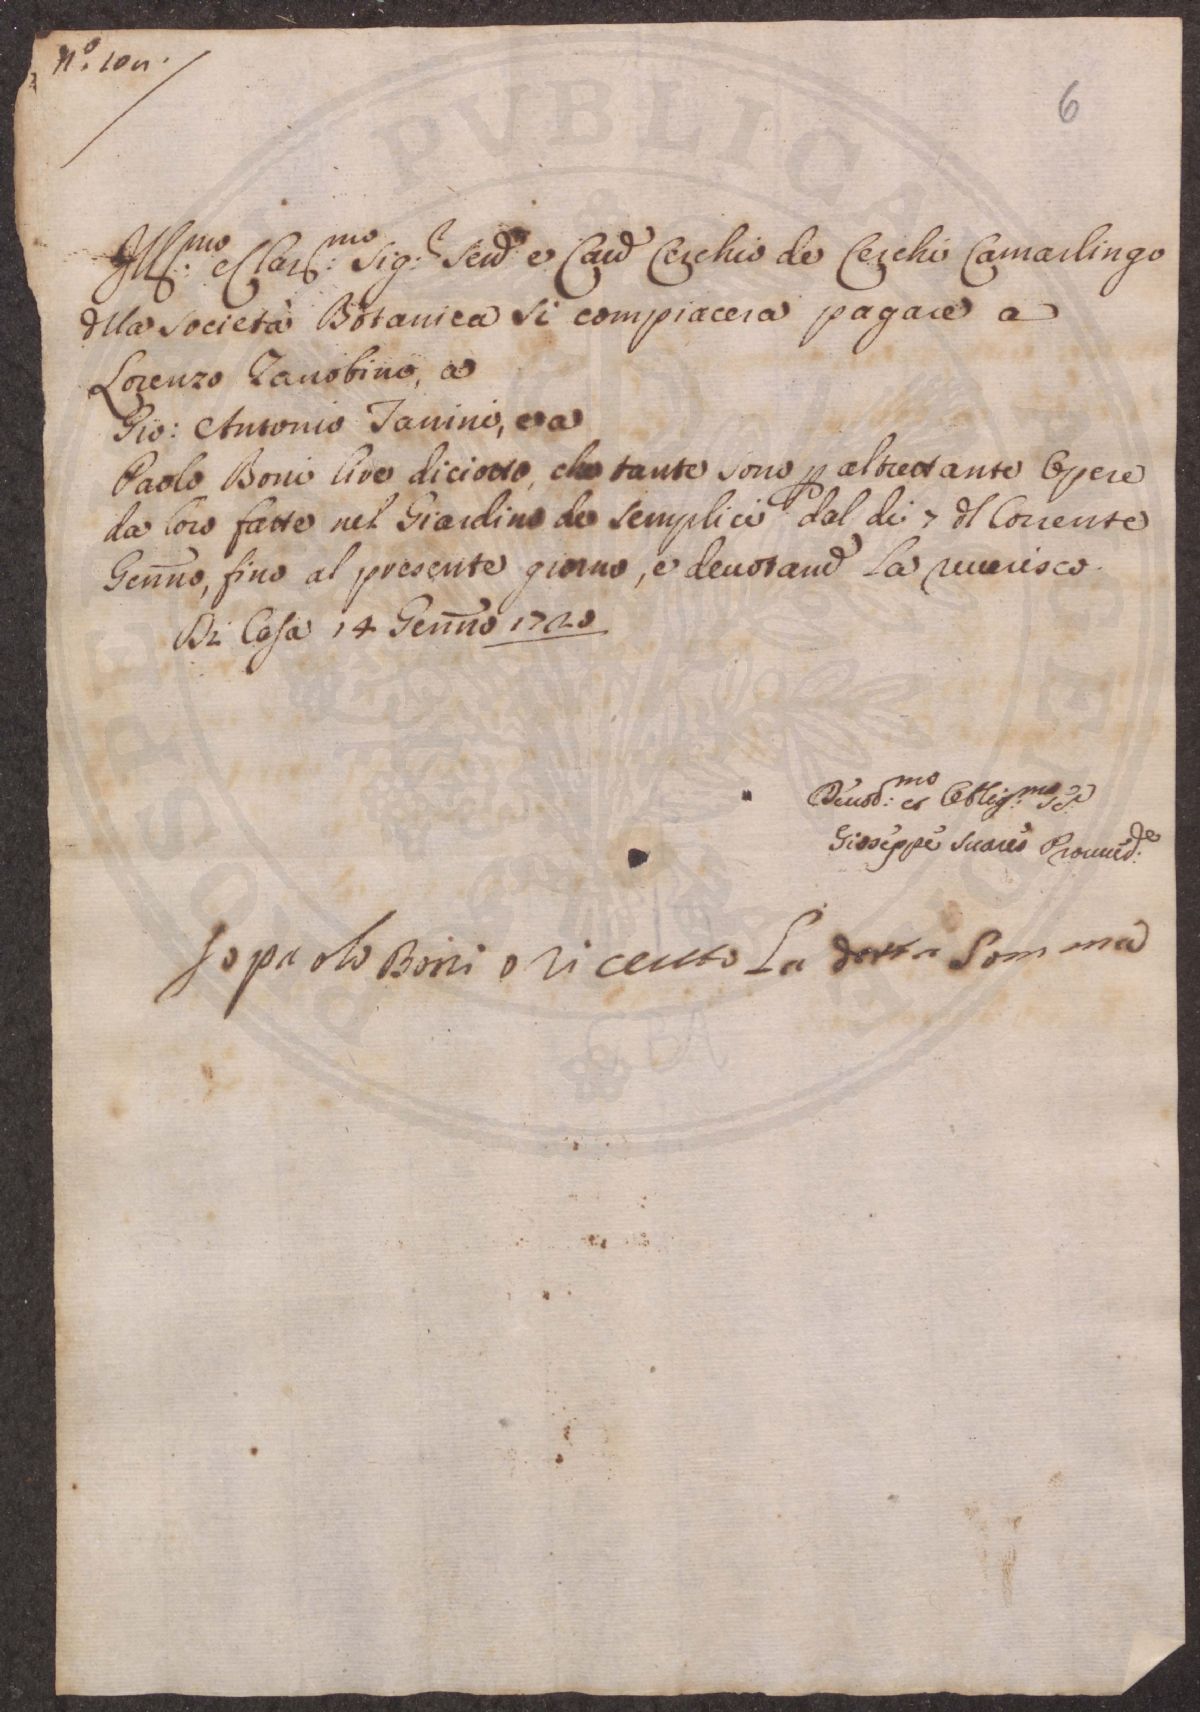 N.º 101.
6
Ill:mo e Clar:mo Sig:r Send e Cavd Cerchio de Cerchi Camarlingo
dlla Società Botanica si compiacera pagare a
Lorenzo Zanobino, a
Gio: Antonio Janini, e a
Paolo Boni lire diciotto, che tante sono p altrettante Opere
da loro fatte nel Giardino de Semplici dal di 7 dl Corrente
Gennno, fino al presente giorno, e devotand La riverisco
Di Casa 14 Gennno 1720
Devot:mo et Oblig:mo Se:r
Gioseppe Suares Proved:re
Io paolo Boni o ricceuto La detta Somma